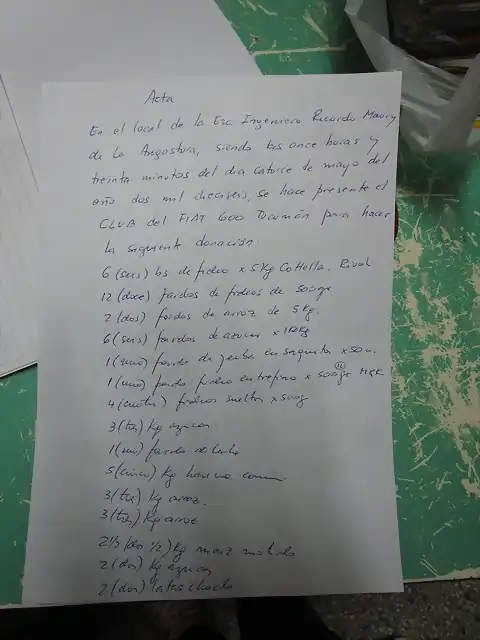 Acta
En el local de la Esc Ingeniero Ricardo Maury
de La Angostura, siendo las once horas y
treinta minutos del dia catorce de mayo del
año dos mil dieciseis, se hace presente el
CLUB del FIAT 600 Tucumán para hacer
la siguiente donación
6 (seis) bs de fideo x 5 Kg Cottella. Rival
12 (doce) fardos de fideos de 500gr
2 (dos) fardos de arroz de 5 Kg.
6 (seis) fardos de azucar x 10Kg
1 (uno) fardo de yerba en saquito x 50u.
1 (uno) fardo fideo entrefino x 500gr
4 (cuatro) fideos sueltos x 500g
3 (tres) Kg azucar
1 (uno) fardo de leche
5 (cinco) Kg harina comun
3 (tres) Kg arroz.
3 (tres) Kg arroz
2 1/2 (dos 1/2) Kg maiz molido
2 (dos) Kg azucar
2 (dos) latas choclo